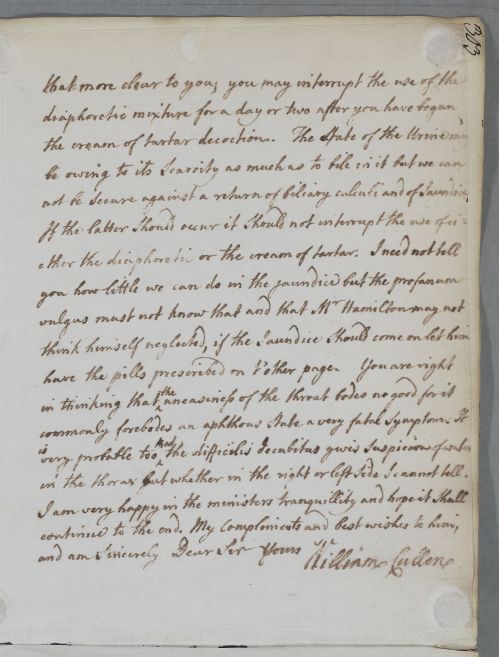 303
that more clear to you; you may interrupt the use of the
diaphoretic mixture for a day or two after you have begun
the cream of tartar decoction. The State of the Urine may
be owing to its Scarcity as much as to bile in it but we can
not be secure against a return of biliary calculi and of Jaundice
If the latter Should occur it Should not interrupt the use of ei=
ether the diaphoretic or the cream of tartar. I need not tell
you how little we can do in the jaundice but the profanum
vulgus must not know that and that Mr Hamilton may not
think himself neglected, if the Jaundice Should come on let him
have the pills prescribed on t'other page. You are right
in thinking that the uneasiness of the throat bodes no good for it
commonly forebodes an aphthous State a very fatal Symptom. It
is very probable too that the difficilis decubitus gives Suspicion of water
in the thorax but whether in the right or left Side I cannot tell.
I am very happy in the ministers tranquillity and hope it Shall
continue to the end. My Compliments and best wishes to him,
and am Sincerely Dear Sir Yours
William Cullen